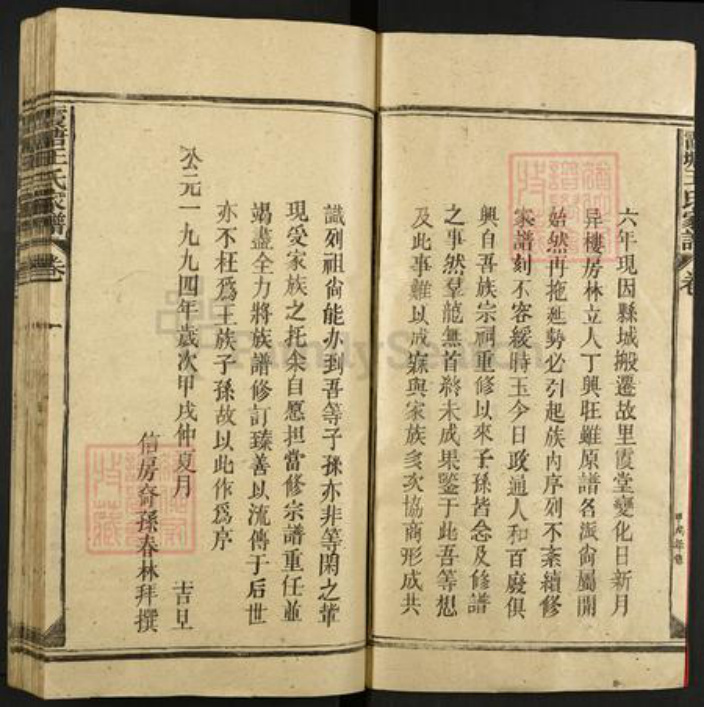 六年現因縣城搬遷故里霞堂變化日新月
异樓房林立人丁興旺雖原譜名派尚屬開
始然再拖延勢必引起族內序列不紊續修
家譜刻不容緩時至今日政通人和百廢俱
興自吾族宗祠重修以來子孫皆念及修譜
之事然羣龍無首終未成果鑒于此吾等想
及此事難以成寐與家族多次協商形成共
識列祖尚能办到吾等子孫亦非等閑之輩
現受家族之托余自愿担當修宗譜重任並
竭盡全力將族譜修訂臻善以流傳于后世
亦不枉爲王族子孫故以此作爲序
公元一九九四年歲次甲戌仲夏月 吉旦
信房裔孫春林拜撰
王氏家譜 卷